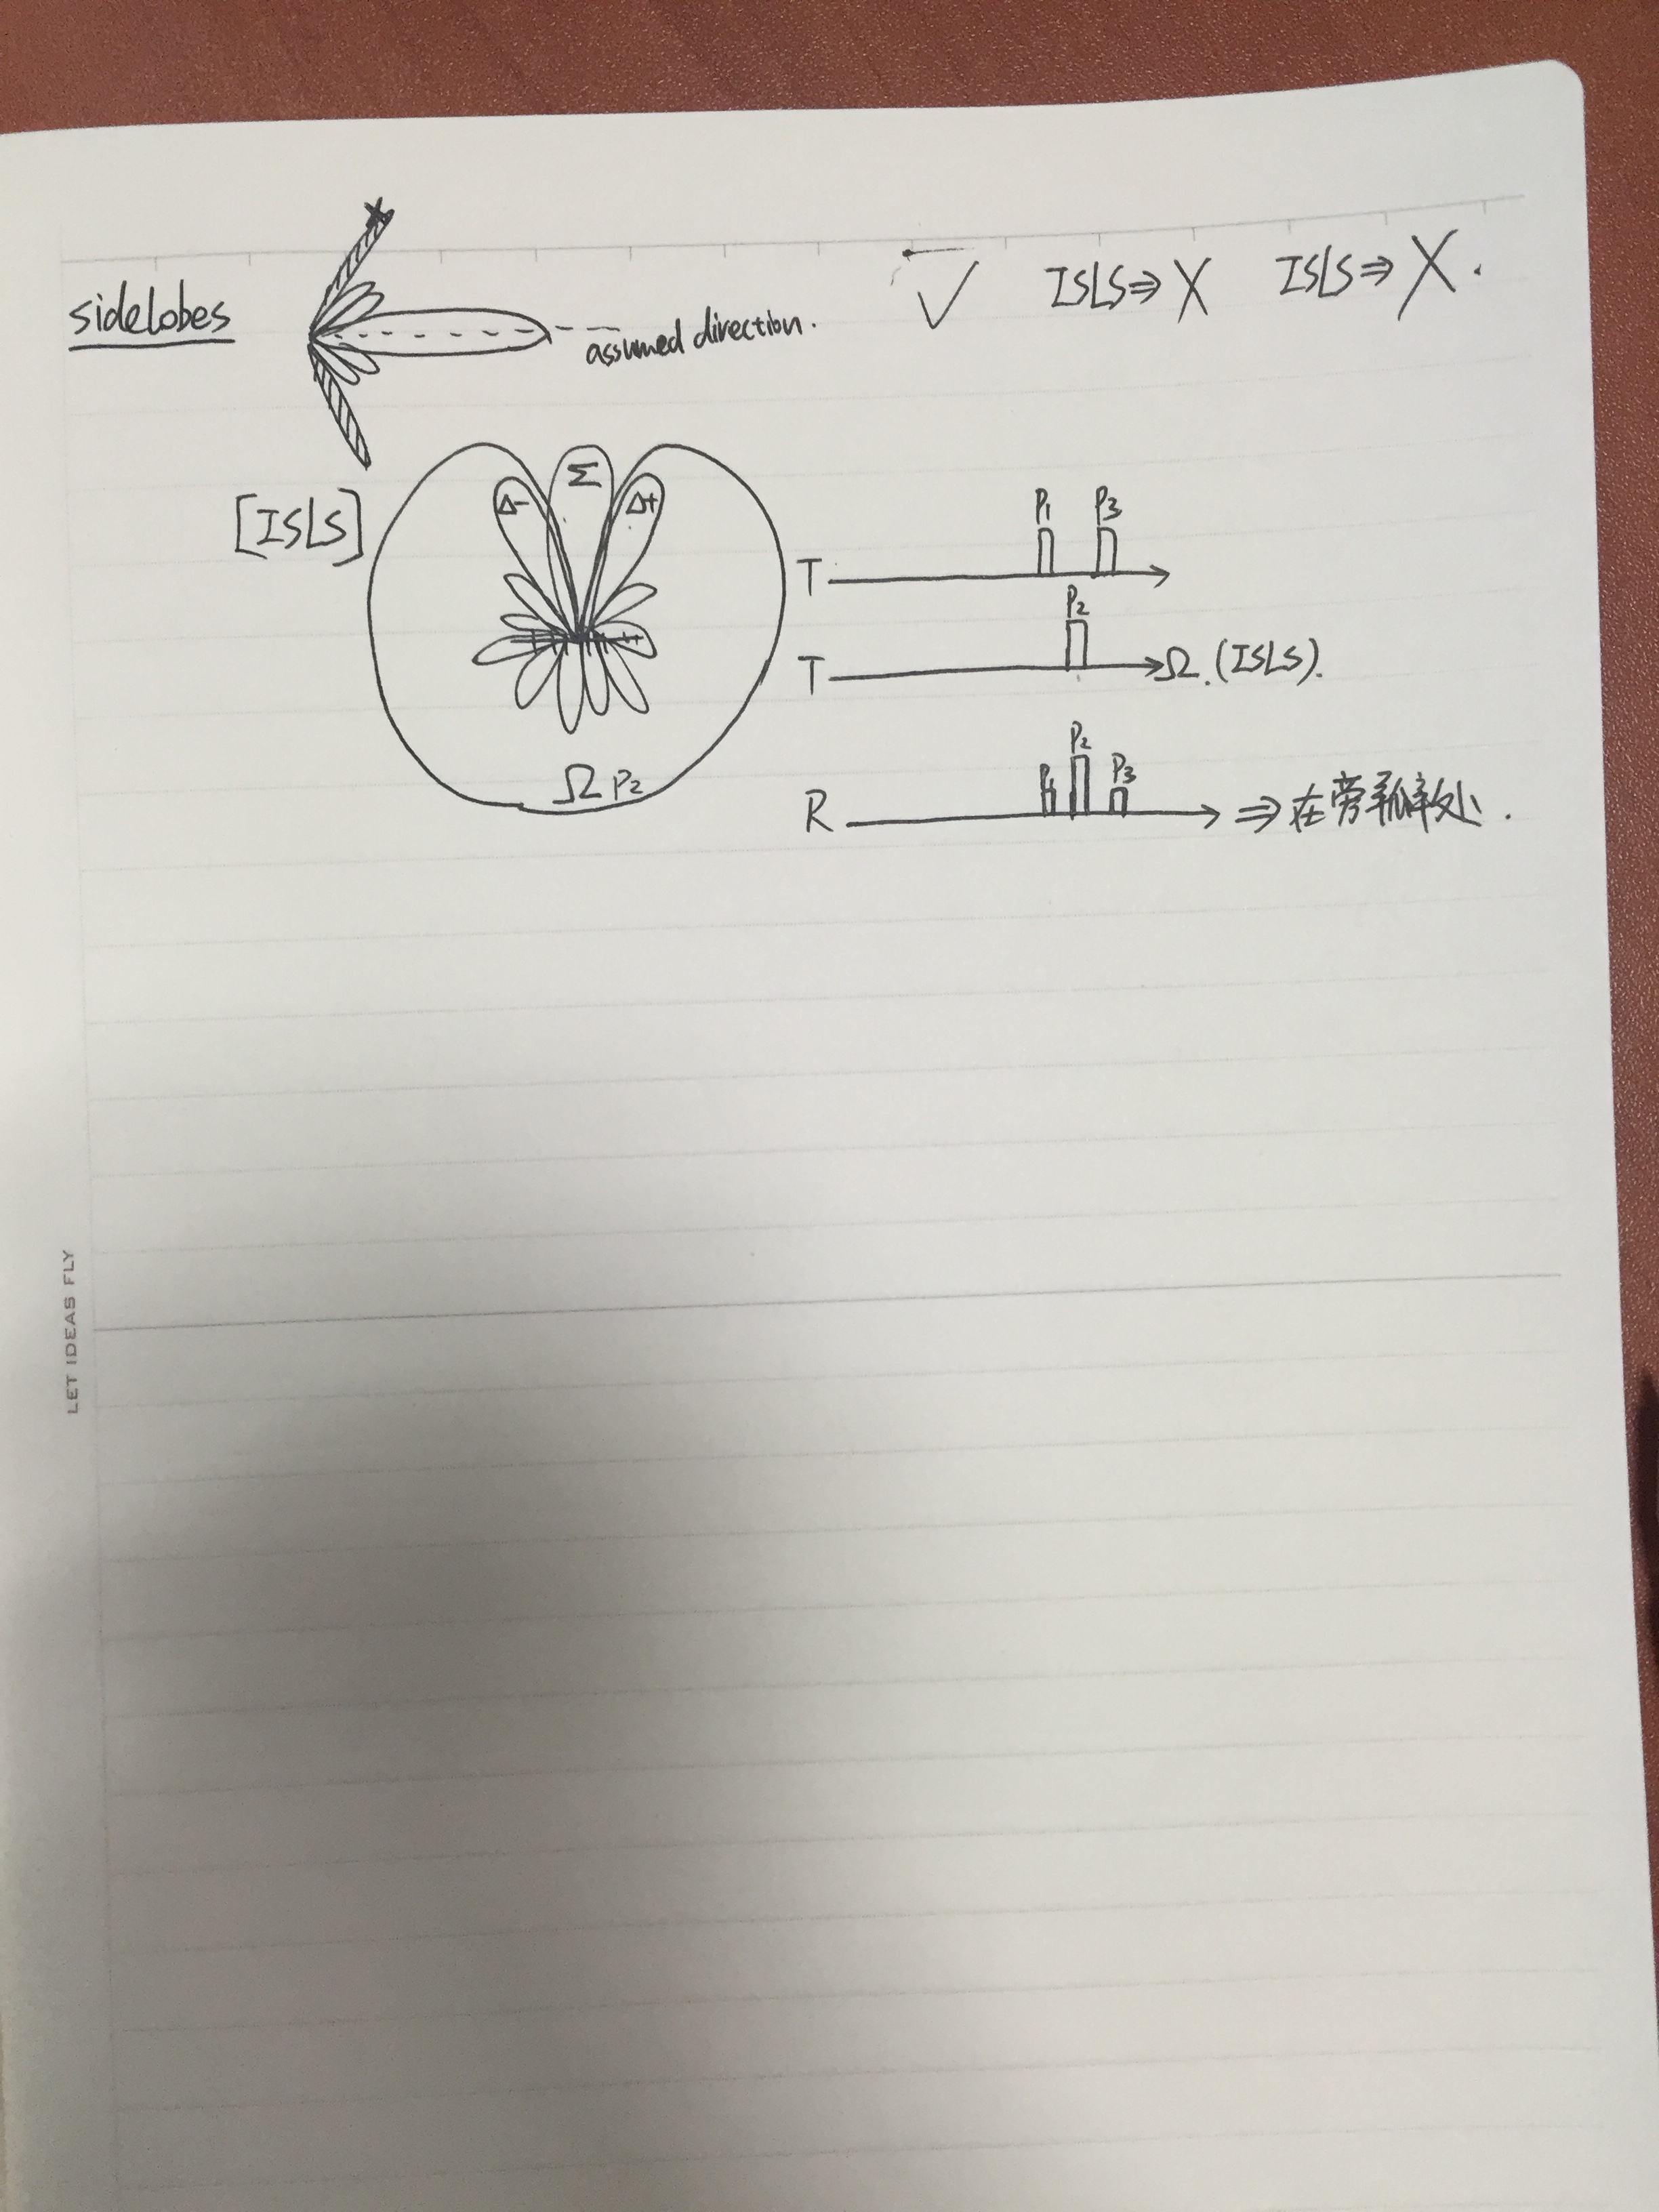 sidelobes
assumed direction.
✓ ISLS⇒X ISLS⇒X.
[ISLS]
Δ- Σ Δ+
Ω P2
P1 P3
T
P2
T Ω.(ISLS).
P1 P2 P3
R ⇒在旁瓣处.
LET IDEAS FLY